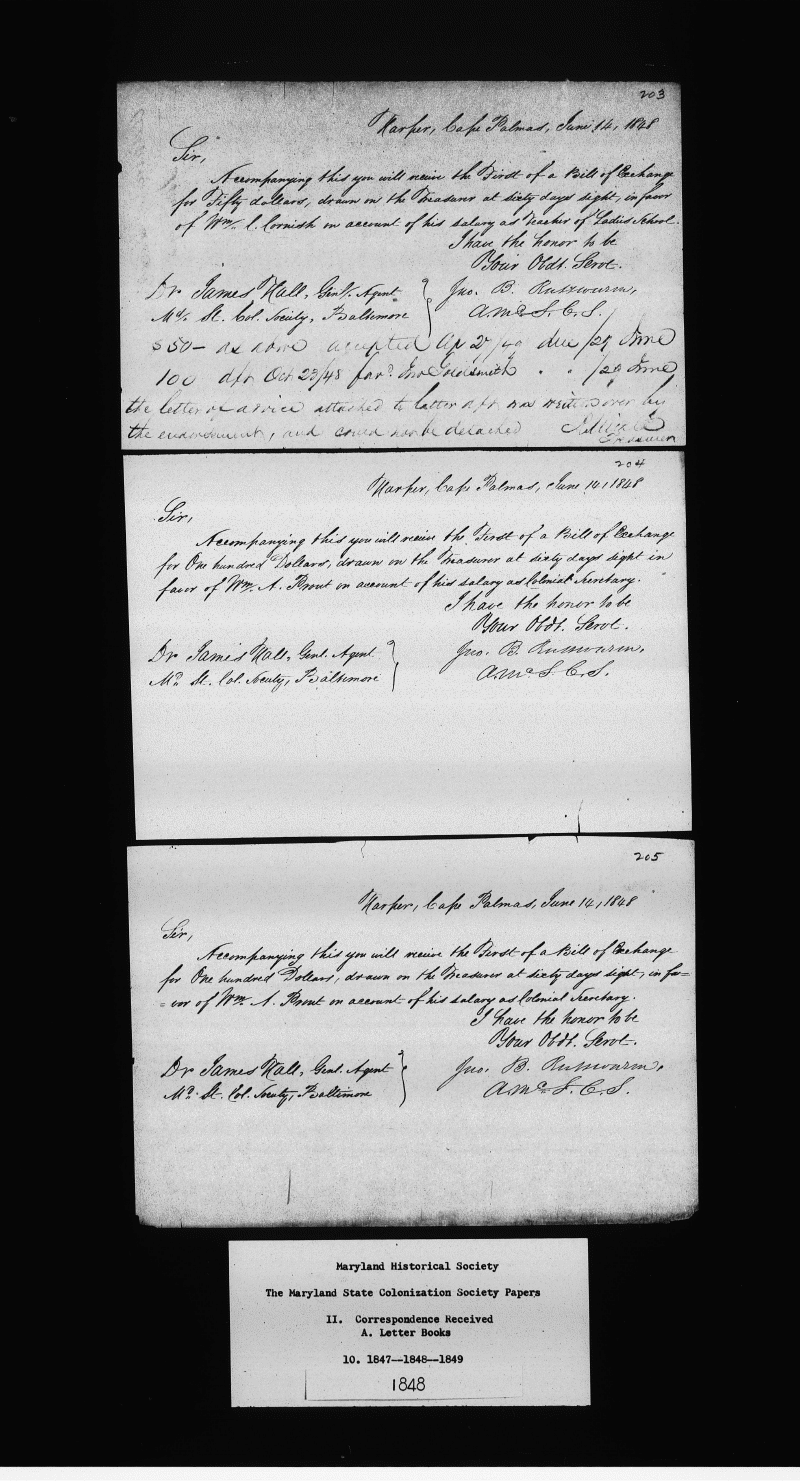 203
Harper, Cape Palmas, June 14, 1848
Sir,
Accompanying this you will receive the First of a Bill of Exchange
for Fifty dollars, drawn on the Treasurer at sixty days sight, in favor
of Wm. C. Cornish on account of his salary as Teacher of Ladies School.
I have the honor to be
Your Obdt. Servt.
Dr James Hall, Genl. Agent
Jno. B. Russwurm,
Md. St. Col. Society, Baltimore
A. Md S. C. S.
$50 – as above accepted Ap 27/49 due /29 June
100 dft Oct 23/48 favr. Jno Goldsmith " " /29 June
the letter of advice attached to latter dft was written over by
the endorsement, and could not be detached
Treasurer
204
Harper, Cape Palmas, June 14, 1848
Sir,
Accompanying this you will receive the First of a Bill of Exchange
for One hundred Dollars, drawn on the Treasurer at sixty days sight in
favor of Wm. A. Prout on account of his salary as Colonial Secretary.
I have the honor to be
Your Obdt. Servt.
Dr James Hall, Genl. Agent
Jno. B. Russwurm,
Md. St. Col. Society, Baltimore
A. Md S. C. S.
205
Harper, Cape Palmas, June 14, 1848
Sir,
Accompanying this you will receive the First of a Bill of Exchange
for One hundred Dollars, drawn on the Treasurer at sixty days sight, in fa=
=vor of Wm. A. Prout on account of his salary as Colonial Secretary.
I have the honor to be
Your Obdt. Servt.
Dr James Hall, Genl. Agent
Jno. B. Russwurm,
Md. St. Col. Society, Baltimore
A. Md S. C. S.
Maryland Historical Society
The Maryland State Colonization Society Papers
II. Correspondence Received
A. Letter Books
10. 1847--1848--1849
1848